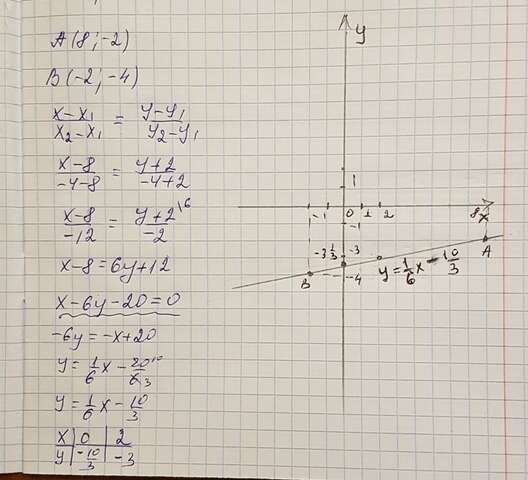 A(8; -2)
B(-2; -4)
x-x₁/x₂-x₁ = y-y₁/y₂-y₁
x-8/-4-8 = y+2/-4+2
x-8/-12 = y+2/-2 |6
x-8=6y+12
x-6y-20=0
-6y=-x+20
y=1/6x-20/6 10 3
y=1/6x-10/3
x | 0 | 2
y | -10/3 | -3
y
1
-1 0 1 2 8 x
-1
-3 1/3 -3
B -4 y=1/6x-10/3 A